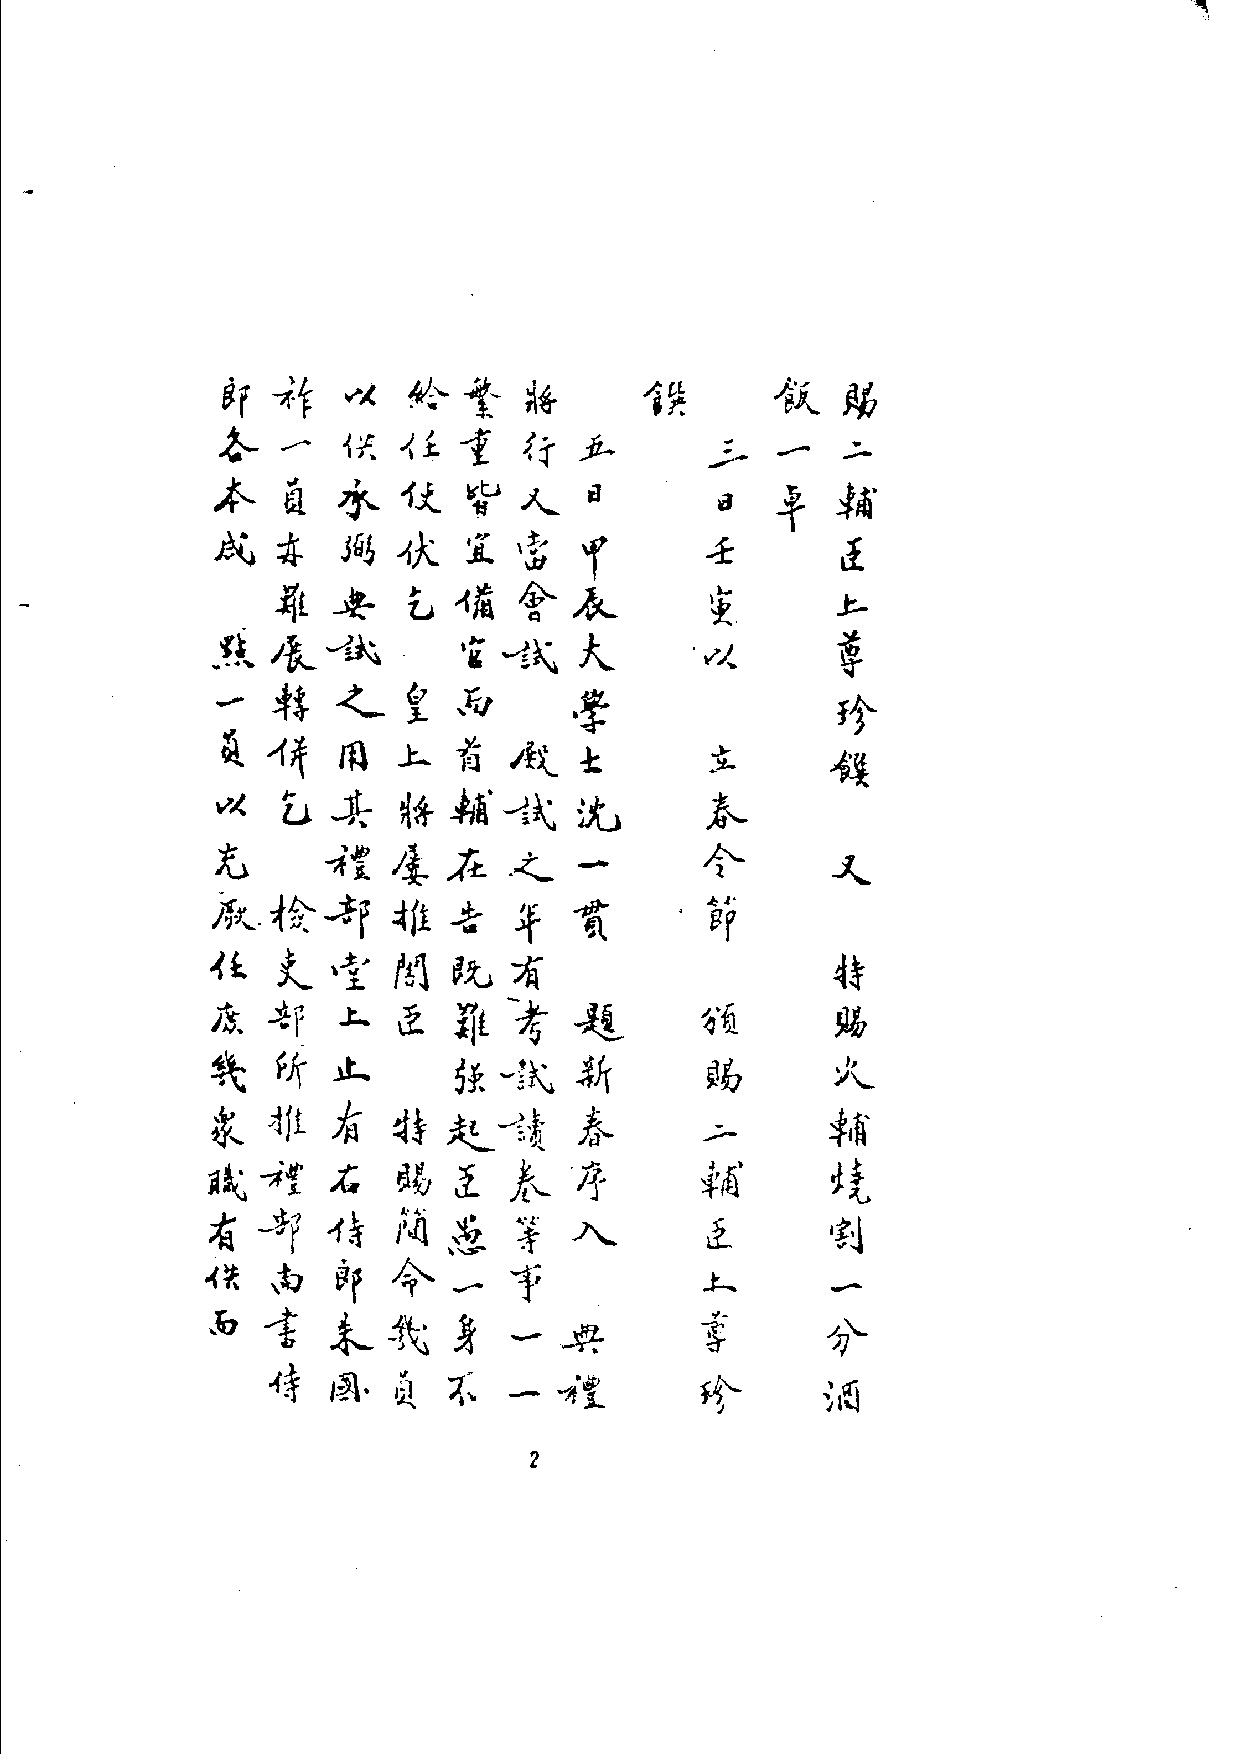 賜二輔臣上尊珍饌　又　特賜火輔燒割一分酒
飯一卓
三日壬寅以　立春令節　頒賜二輔臣上尊珍
饌
五日甲辰大學士沈一貫　題新春序入　典禮
將行又當會試　殿試之年有考試讀卷等事一一
繁重皆宜備官而首輔在告既難强起臣愚一身不
給任使伏乞　皇上將屢推閣臣　特賜簡命幾員
以供承弼典試之用其禮部堂上止有右侍郎朱國
祚一員亦難展轉併乞　檢吏部所推禮部尚書侍
郎各本咸　點一員以充厥任庶幾衆職有供而
2